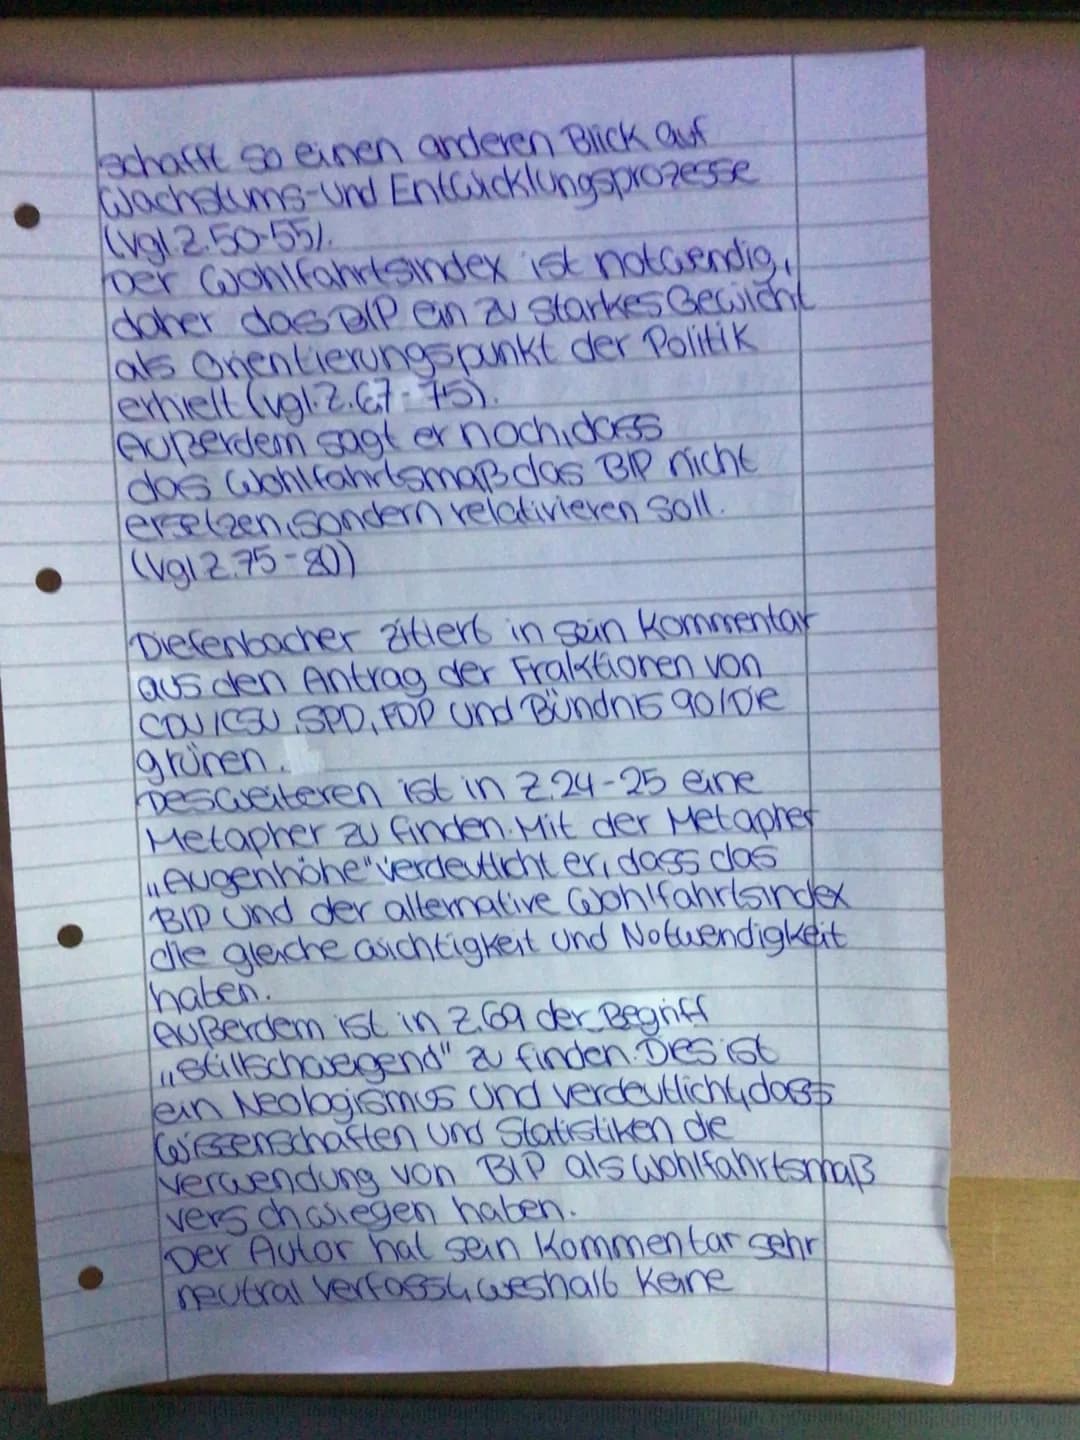 schafft so einen anderen Blick auf
Wachstums-und Entwicklungsprozesse
(vgl.Z.50-55).
Der Wohlfahrtsindex ist notwendig,
daher das BIP ein zu starkes Gewicht
als Orientierungspunkt der Politik
erhielt (vgl.Z.67-75).
Außerdem sagt er noch,dass
das Wohlfahrtsmaß das BIP nicht
ersetzen,sondern relativieren soll.
(vgl Z.75-80))
Diefenbacher zitiert in sein Kommentar
aus den Antrag der Fraktionen von
CDU/CSU,SPD,FDP und Bündnis 90/Die
grünen.
Desweiteren ist in Z.24-25 eine
Metapher zu finden.Mit der Metapher
„Augenhöhe" verdeutlicht er,dass das
BIP und der alternative Wohlfahrtsindex
die gleiche wichtigkeit und Notwendigkeit
haben.
Außerdem ist in Z.69 der Begriff
„stillschweigend" zu finden.Dies ist
ein Neologismus und verdeutlicht,dass
Wissenschaften und Statistiken die
verwendung von BIP als Wohlfahrtsmaß
verschwiegen haben.
Der Autor hat sein Kommentar sehr
neutral verfasst,weshalb keine